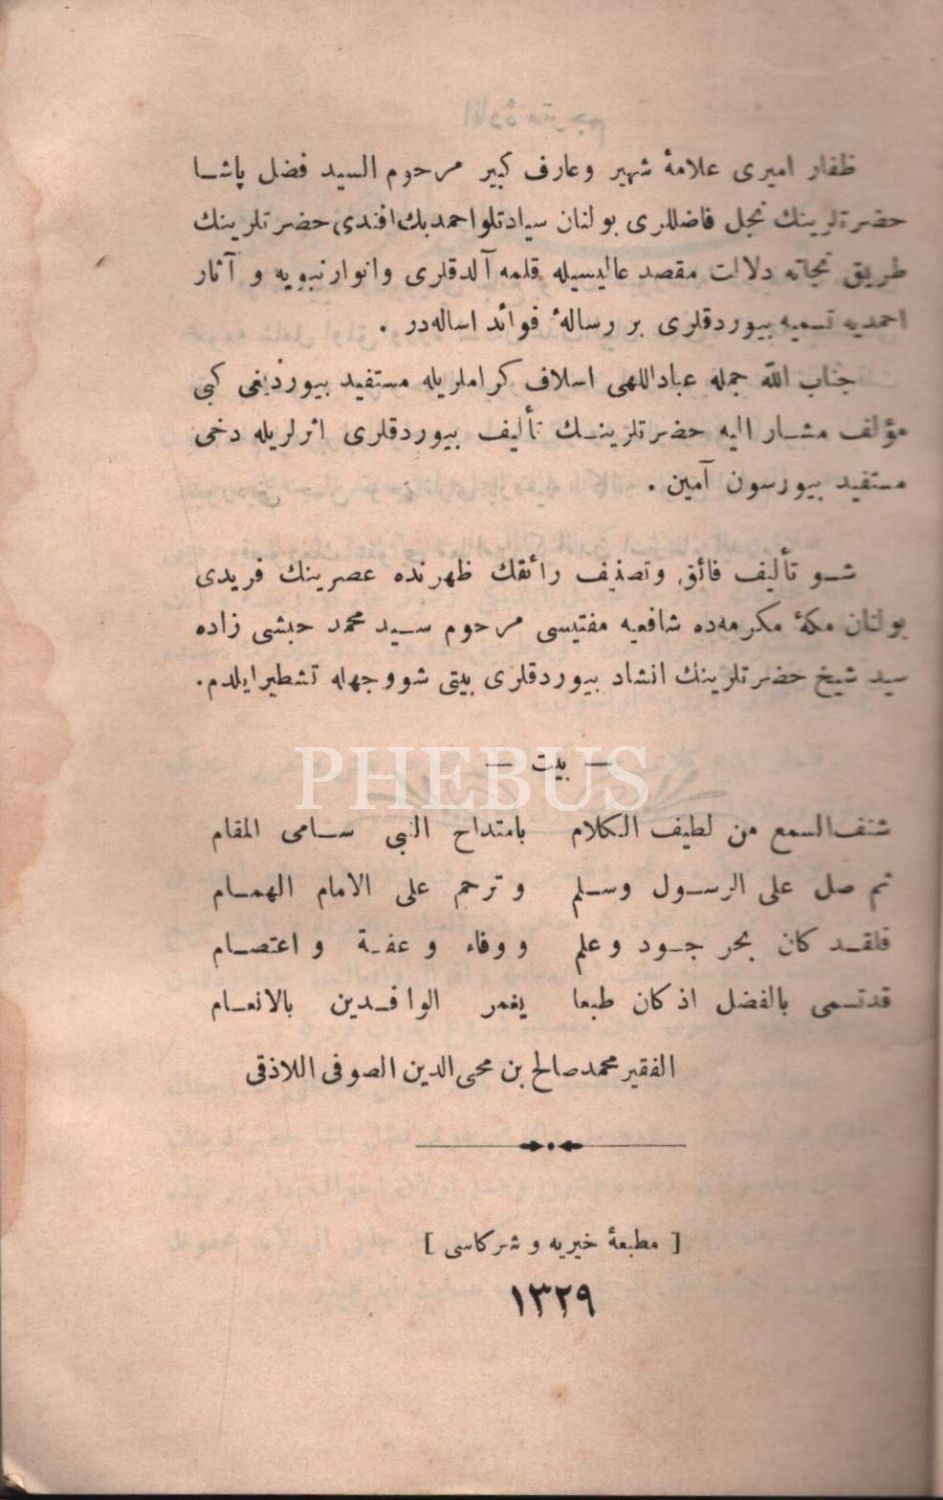 ظفار اميرى علامهٔ شهير وعارف كبير مرحوم السيد فضل پاشا
حضرتلرينك نجل فاضللرى بولنان سيادتلو احمدبك افندى حضرتلرينك
طريق نجاته دلالت مقصد عاليسيله قلمه آلدقلرى وانوار نبويه و آثار
احمديه تسميه بيوردقلرى بر رسالهٔ فوائد اساله‌در .
جناب الله جمله عباداللهى اسلاف كراملريله مستفيد بيورديغى كبى
مؤلف مشار اليه حضرتلرينك تأليف بيوردقلرى اثرلريله دخى
مستفيد بيورسون آمين .
شو تأليف فائق وتصنيف رائقك ظهرنده عصرينك فريدى
بولنان مكهٔ مكرمه‌ده شافعيه مفتيسى مرحوم سيد محمد حبشى زاده
سيد شيخ حضرتلرينك انشاد بيوردقلرى بيتى شووجهله تشطيرايلدم.
— بيت —
PHEBUS
شنف السمع من لطيف الكلام بامتداح النبى سامى المقام
ثم صل على الرسول وسلم وترحم على الامام الهمام
فلقد كان بحر جود وعلم ووفاء وعفة واعتصام
قدتسمى بالفضل اذ كان طبعا يغمر الوافدين بالانعام
الفقير محمد صالح بن محى الدين الصوفى اللاذقى
[ مطبعهٔ خيريه و شركاسى ]
١٣٢٩